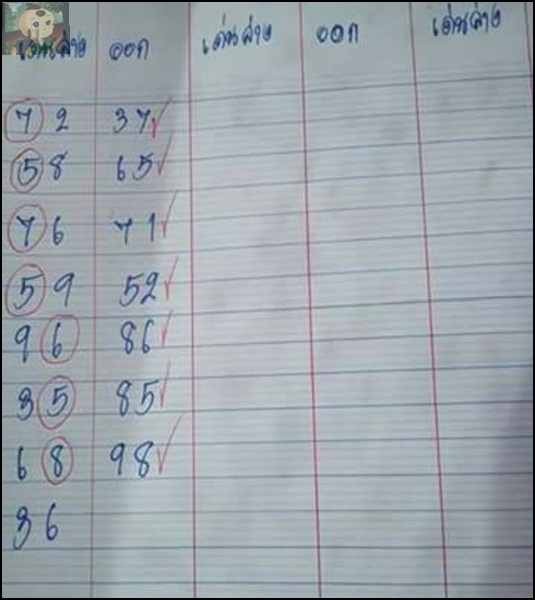 เด่นล่าง ออก เด่นล่าง ออก เด่นล่าง
72 37✓
58 65✓
76 71✓
59 52✓
96 86✓
35 85✓
68 98✓
36